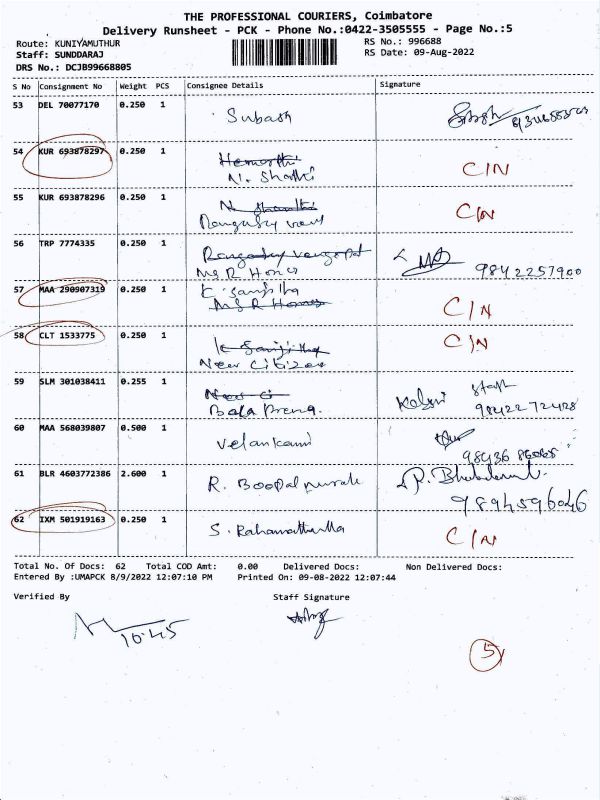 THE PROFESSIONAL COURIERS, Coimbatore
Delivery Runsheet - PCK - Phone No.:0422-3505555 - Page No.:5
Route: KUNIYAMUTHUR
RS No.: 996688
Staff: SUNDDARAJ
RS Date: 09-Aug-2022
DRS No.: DCJB99668805
S No Consignment No Weight PCS Consignee Details Signature
53 DEL 70077170 0.250 1 Subash
54 KUR 693878297 0.250 1 C/N
N. Shathi
55 KUR 693878296 0.250 1 C/N
56 TRP 7774335 0.250 1
MSR Homes 9842257900
57 MAA 290907319 0.250 1
MSR Homes C/N
58 CLT 1533775 0.250 1 C/N
New Citizen
59 SLM 301038411 0.255 1 Staff
Bala Prena. 98422 72428
60 MAA 568039807 0.500 1 Velankanni
61 BLR 4603772386 2.600 1 R. Boopal
9894596046
62 IXM 501919163 0.250 1 S. Rahamathulla C/N
Total No. Of Docs: 62 Total COD Amt: 0.00 Delivered Docs: Non Delivered Docs:
Entered By :UMAPCK 8/9/2022 12:07:10 PM Printed On: 09-08-2022 12:07:44
Verified By Staff Signature
10.45
5